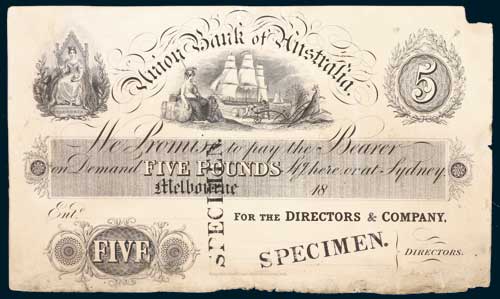 Union Bank of Australia
5
We Promise to pay the Bearer
on Demand FIVE POUNDS here or at Sydney.
Melbourne 18
Ent.d
FOR THE DIRECTORS & COMPANY,
FIVE
SPECIMEN.
SPECIMEN.
DIRECTORS.